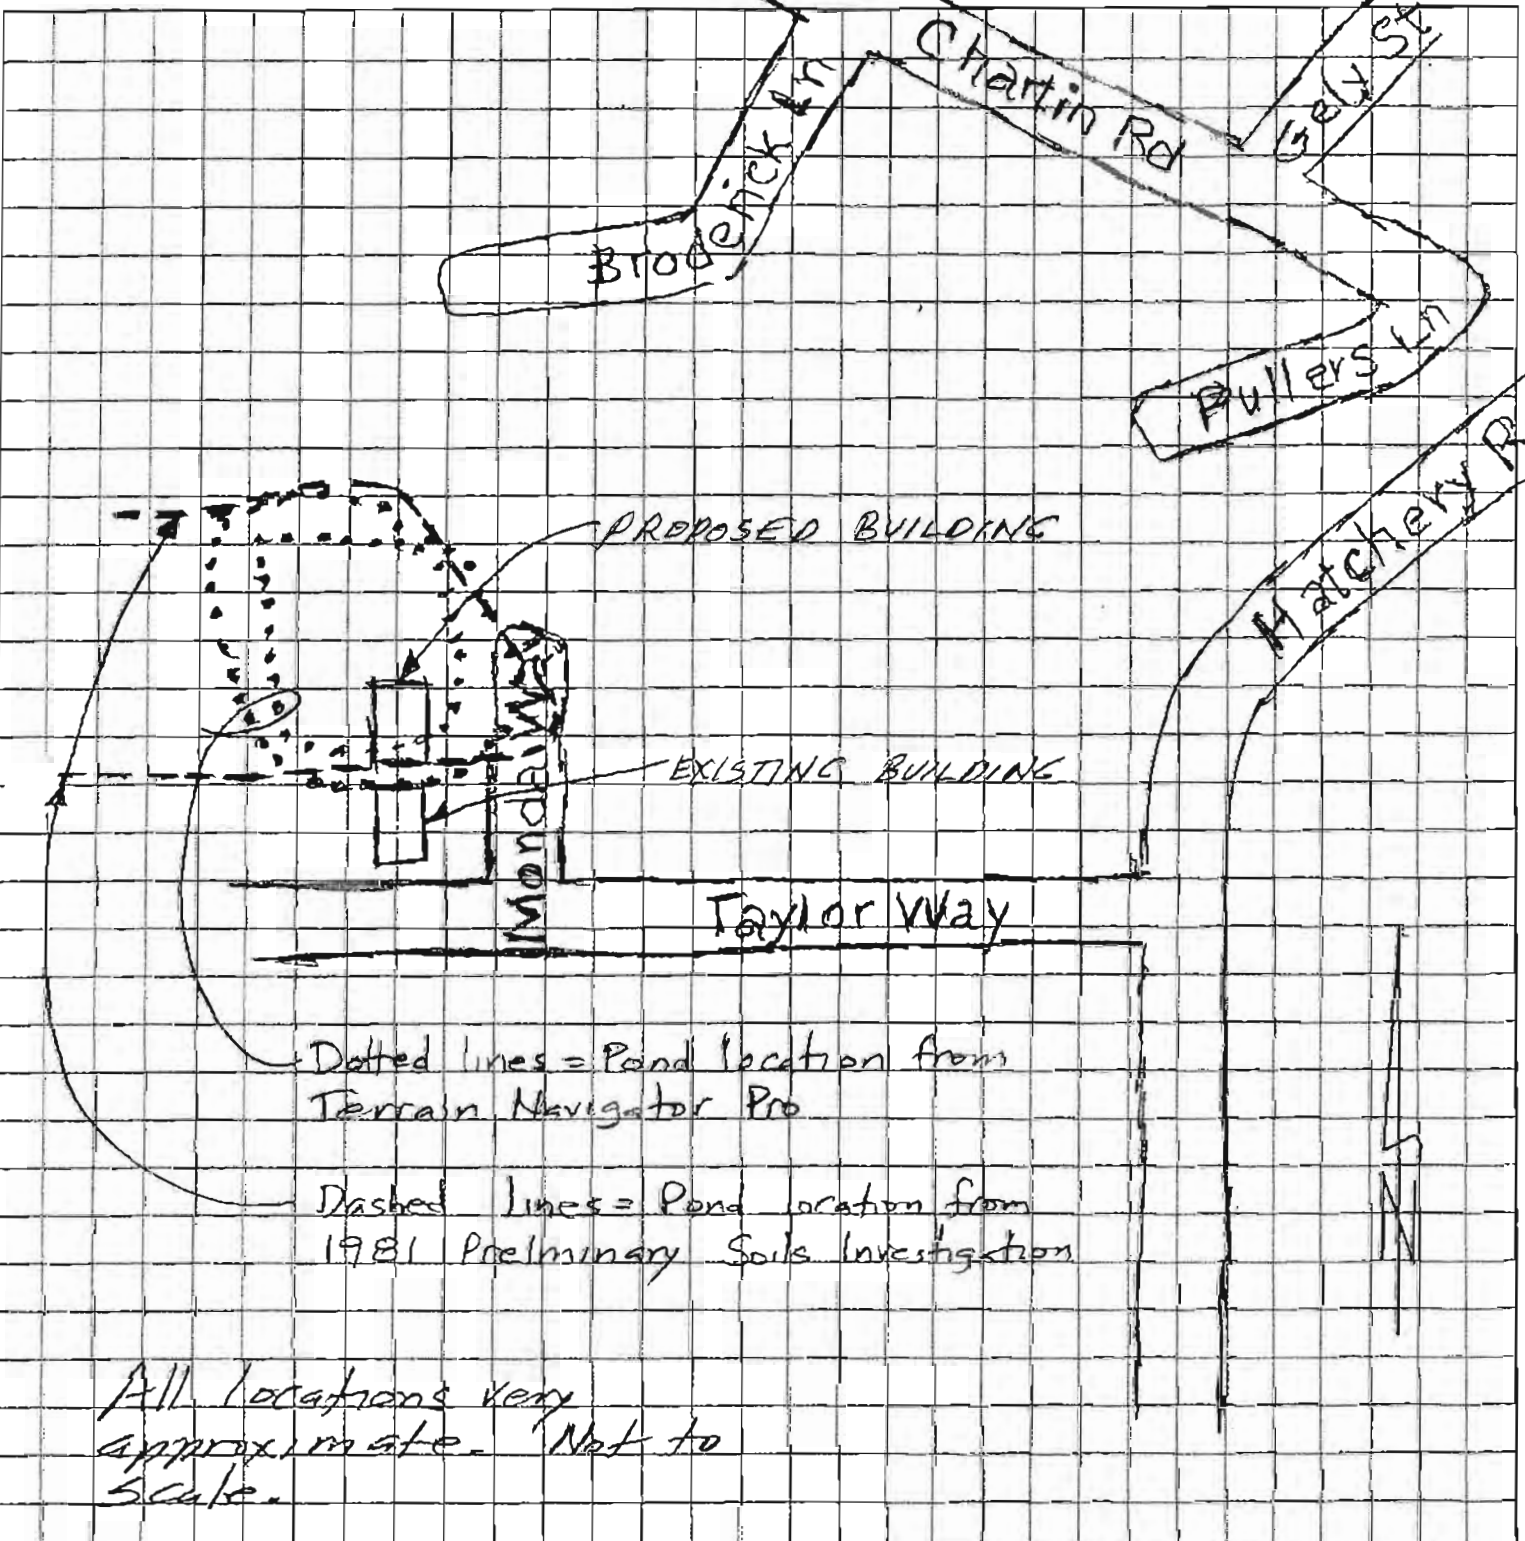 Chartin Rd
Gely St
Broderick Ln
Pullers Ln
Hatchery R
PROPOSED BUILDING
EXISTING BUILDING
Monda Way
Taylor Way
Dotted lines = Pond location from
Terrain Navigator Pro
Dashed lines = Pond location from
1981 Prelminary Soils Investigation
N
All locations very
approximate. Not to
Scale.